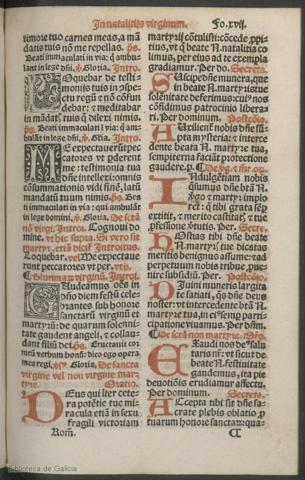 In natalitiis virginum. Fo.xvij.
timore tuo carnes meas, a mã
datis tuis nõ me repellas. ps̃.
Beati immaculati in via: q̃ ambu-
lant in lege dñi. ℣. Gloria. Intro.
Loquebar de testi-
moniis tuis in cõspe-
ctu regũ z nõ cõfun
debar: z meditabar
in mãdat̃. tuis q̃ dilexi nimis.
ps̃. Beati immaculati i via: q̃ am-
bulãt in lege dñi. ℣. Gl̃ia. Intro.
Me expectauerũt pec
catores vt pderent
me: testimonia tua
dñe intellexi: omnis
cõsummationis vidi finẽ, latũ
mandatũ tuum nimis. ps̃. Bea
ti immaculati in via: qui ambulãt
in lege domini. ℣. Gloria. De sctã
nõ virgĩ. Introi. Cognoui do
mine. vt hic supra. Si vero sit
martyr. etiã dicit̃ Introitus.
Loquebar. vel Me expectaue
runt peccatores vt per.
Plurimarũ virginũ. Introi.
Gaudeamus oẽs in
dño diem festũ cele-
brantes sub honore
sanctarũ virginũ et
martyrũ: de quarum solennitate
gaudent angeli, z collaudant
filium dei. ps̃. Eructauit cor
meũ verbum bonũ: dico ego opera
mea regi. ℣. Gloria. De sancta
virgine vel non virgine mar.
Oratio.
Deus qui iter cete-
ra potẽtie tue mi-
racula etiã in sexu
fragili victoriam
Rom̃.
martyrii cõtulisti: cõcede ppi-
tius, vt q̃ beate N. natalitia co
limus, per eius ad te exempla
gradiamur. Per do. Secreta.
Suscipe dñe munera, que
in beate N. martyris tue
solennitate deferimus: cui' nos
cõfidimus patrocinio libera
ri. Per dominum. Postcõio.
Auxilient nobis dñe sũ-
pta mysteria: z interce-
dente beata N. martyre tua,
sempiterna faciant protectione
gaudere. p.
Indulgẽtiam nobis
q̃sumus dñe btã N.
virgo z martyr implo
ret: q̃ tibi grata sẽp
extitit, z merito castitat̃. z tue
pfessione virtut̃. Per. Secre.
Hostias tibi dñe beate
N. martyr̃. tue dicatas
meritis benignus assume: z ad
perpetuum nobis tribue pue-
nire subsidiũ. Per. Postcõio.
Diuini muneris largita
te satiati, q̃s dñe deus
noster: vt intercedente btã N.
martyre tua, in ei' semp parti-
cipatione viuamus. Per dñm.
De sctã non martyre. Orõ.
Exaudi nos deus salu-
taris nr̃: vt sicut de
beate N. festiuitate
gaudemus, ita pie
deuotiõis erudiamur affectu.
Per dominum. Secreta.
Accepta tibi sit dñe sa-
crate plebis oblatio, p
tuarum honore sanctarũ: qua
C
Biblioteca de Galicia